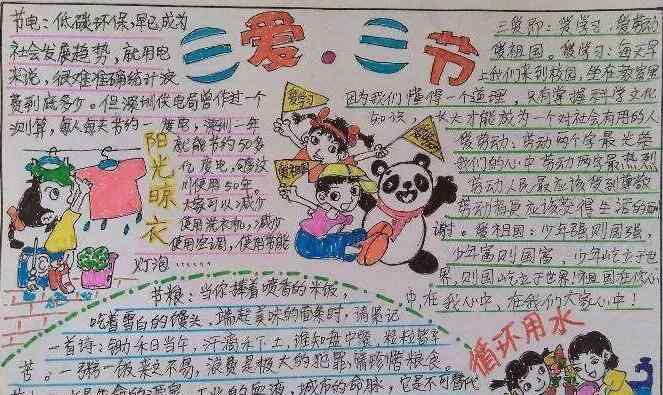 三爱·三节
节电:低碳环保,早已成为
社会发展趋势,就用电
来说,很难准确统计浪
费到底多少。但深圳供电局曾作过一个
测算,每人每天节约一度电,深圳一年
就能节约50多
亿度电,
用使用50年。
大家可以减少
使用洗衣机,减少
使用空调,使用节能
灯泡……
阳光晾衣
爱学习
爱劳动
爱祖国
三爱即:爱学习,爱劳动
爱祖国。爱学习:每天早
上我们来到校园,坐在教室里
因为我们懂得一个道理,只有掌握科学文化
知识,长大才能成为一个对社会有用的人
爱劳动:劳动两个字最光荣
我们的心中劳动两字最
劳动人民最应该受到尊敬
劳动者更应该获得生活的酬
谢。爱祖国:少年强则国强,
少年富则国富,少年屹立于世
界,则国屹立于世界!祖国在你心
中,在我心中,在我们大家心中!
节粮:当你捧着喷香的米饭,
吃着雪白的馒头,端起美味的面条时,请果记
一首诗:锄禾日当午,汗滴禾下土,谁知盘中餐,粒粒皆辛
苦。一粥一饭来之不易,浪费是极大的犯罪,请珍惜粮食。
循环用水
生命的源泉,工业的血液,城市的命脉,它是不可替代